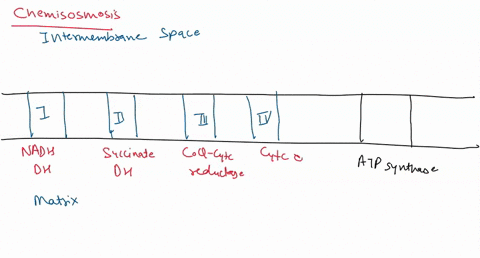 Chemisosmosis
Intermembrane Space
I
II
III
IV
NADH
DH
Succinate
DH
CoQ-Cytc
reductase
Cytc o
ATP synthase
Matrix